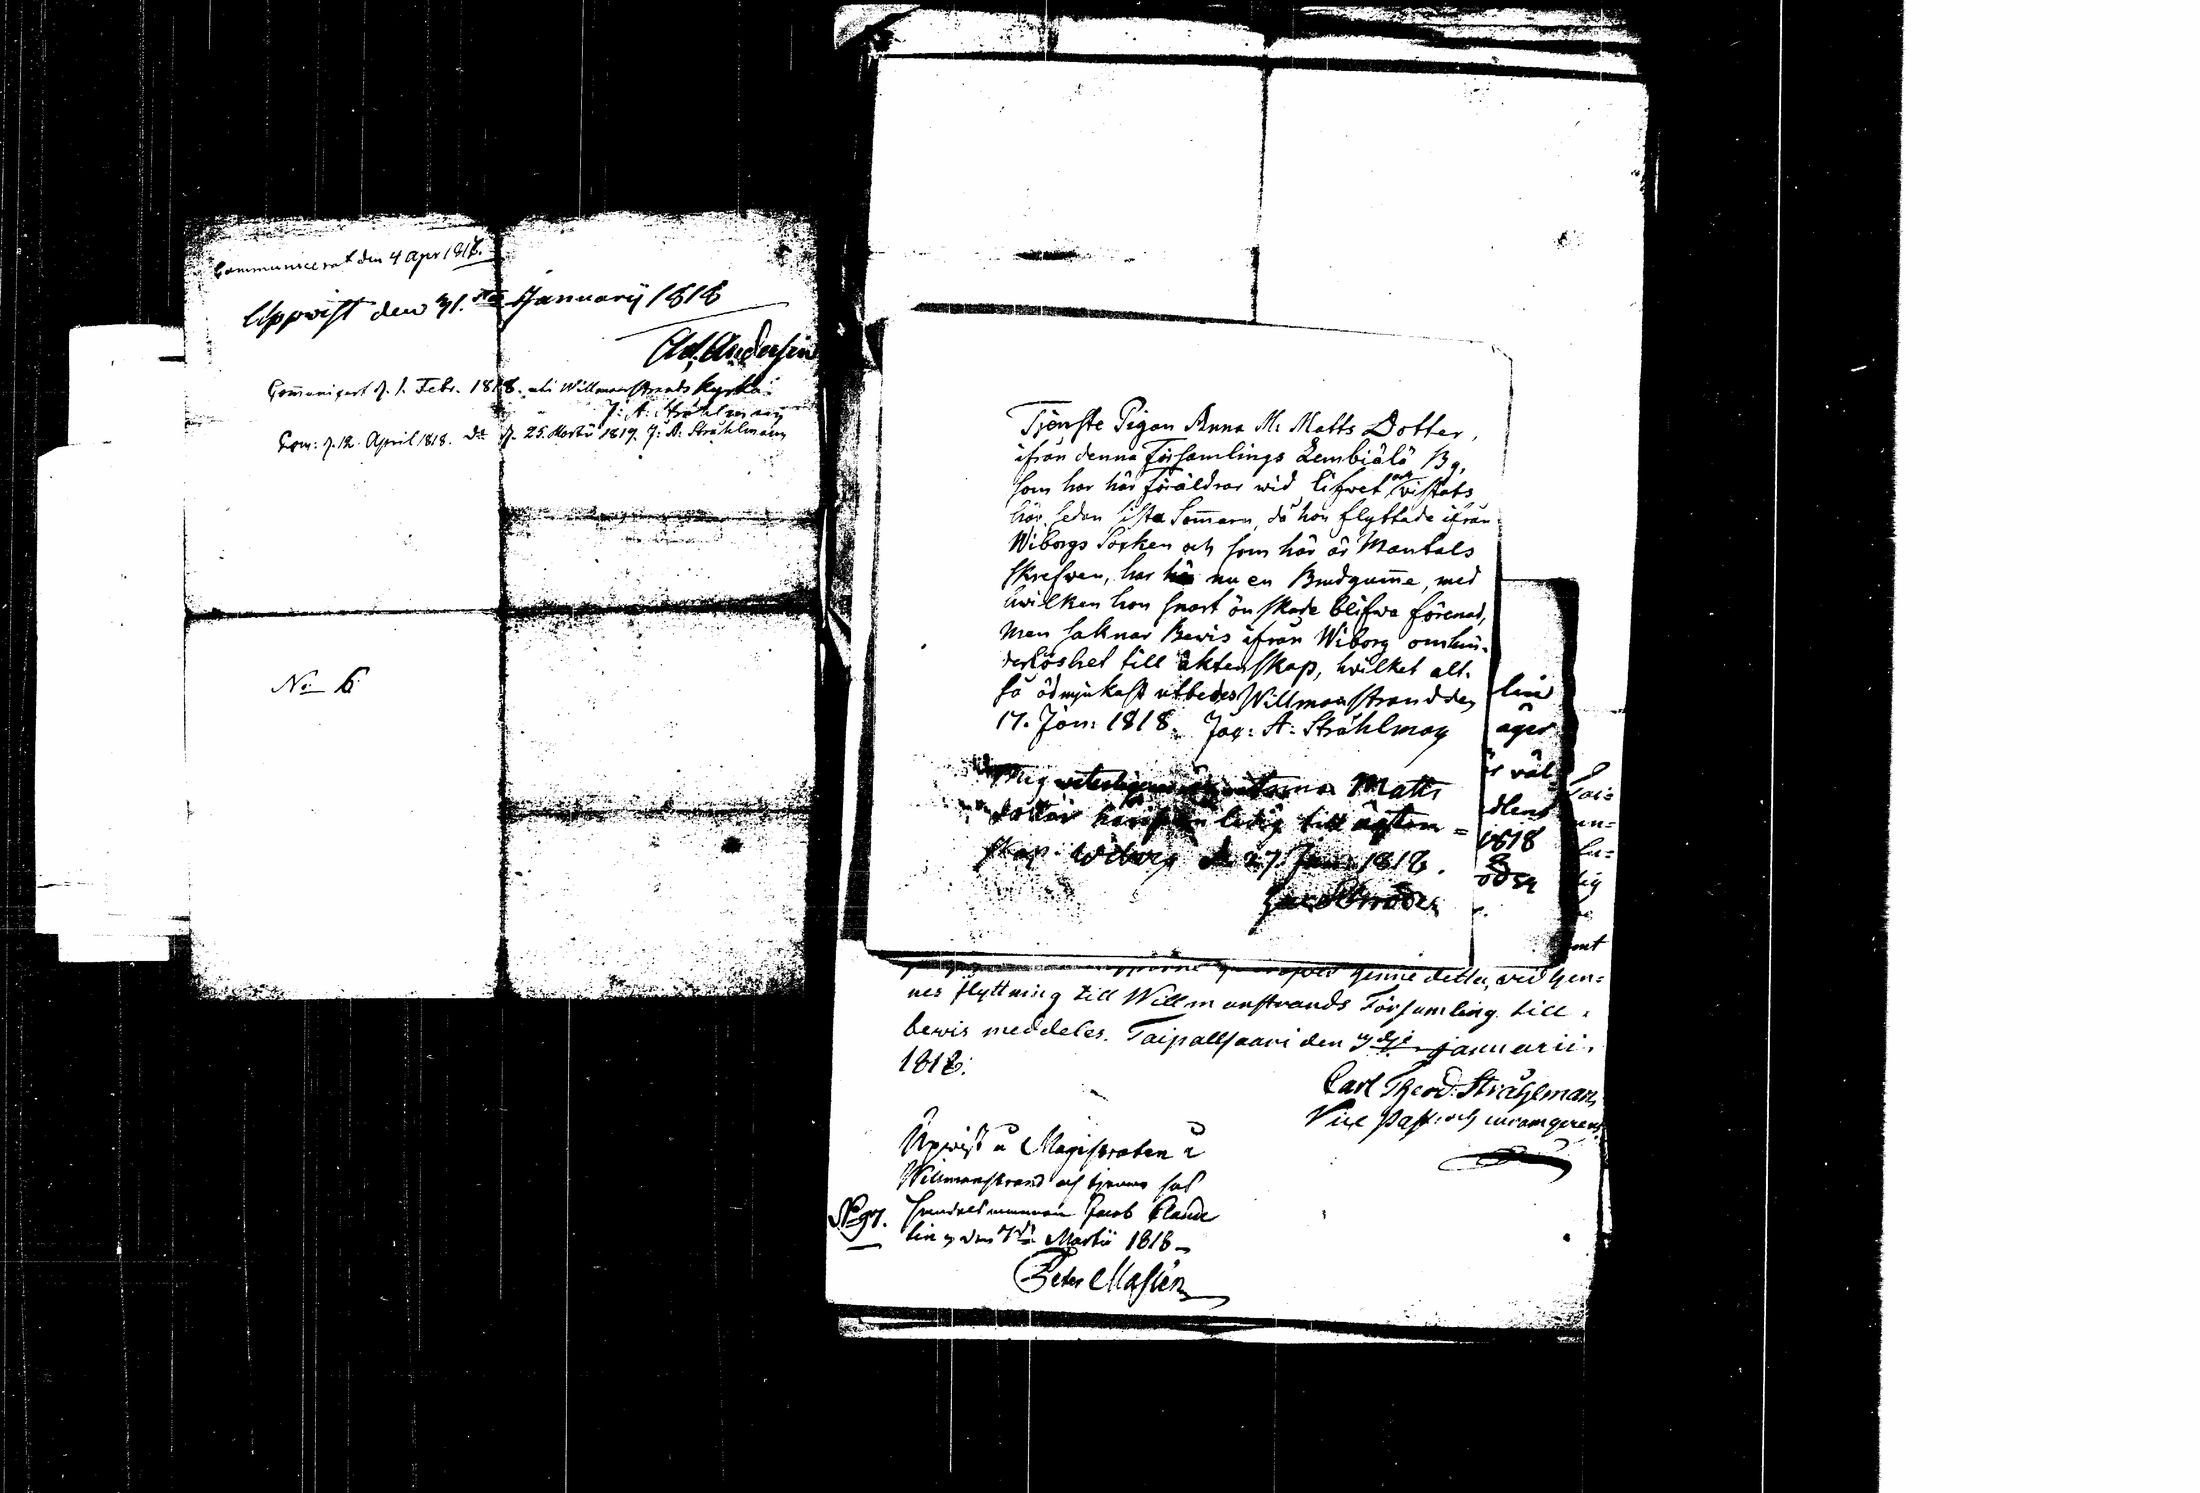 Communicerat den 4 Apr 1818.
Uppvist den 31.sta Januarii 1818
Ad. Andersin
Comunicert d. 1. Febr. 1818. uti Willmanstrands kyrka.
J: A: Stråhlmann
Com: d. 12. April 1818. do d. 25. Martii 1819. J: A: Stråhlmann
No 6
Tjenste Pigan Anna M. Matts Dotter,
ifrån denna Församlings Lembiälä By,
som har här föräldrar wid lifwet och vistats
här sedan sista Somaren, då hon flyttade ifrån
Wiborgs Socken och som här är Mantals
skrefwen, har nu en Brudgume, med
hwilken hon snart önskade blifwa förenad,
men saknar Bewis ifrån Wiborg om hin-
derlöshet till äktenskap, hwilket alt-
så ödmjukast utbedes Willmanstrand den
17. Jan: 1818. Jac: A: Stråhlman
Mig veterligen Anna Matts
dotter härifrån ledig till ägten=
skap. Wiborg d. 27. Jan 1818.
lin
ager
är väl
dlens
1818
Tai=
un=
henne detta, vid hen=
nes flyttning till Willmanstrands Församling till
bevis meddeles. Taipallsaari den 7dje Januarii
1818.
Carl Theod. Stråhlman
Vice Past. och curam gerens
Upvist i Magistraten i
Willmanstrand och tjenar hos
Handelsmannen Jacob Claude
No 97.
lin den 7de Martii 1818
Peter Maslin